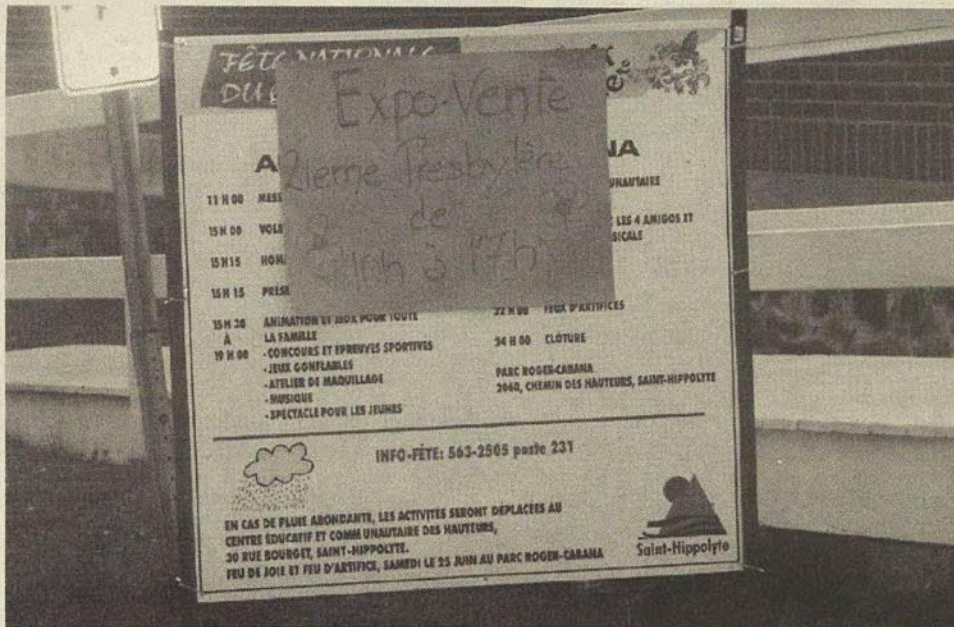 FÊTE NATIONALE
DU
Expo-Vente
2ieme Presbytère
de
10h à 17h
11 H 00 MESS
15 H 00 VOLE
15 H 15 HOM
15 H 30
À
19 H 00
ANIMATION ET JEUX POUR TOUTE
LA FAMILLE
- CONCOURS ET EPREUVES SPORTIVES
- JEUX GONFLABLES
- ATELIER DE MAQUILLAGE
- MUSIQUE
- SPECTACLE POUR LES JEUNES
NA
UNAUTAIRE
LES 4 AMIGOS ET
SICALE
22 H 00 FEUX D'ARTIFICES
24 H 00 CLÔTURE
PARC ROGER-CABANA
2060, CHEMIN DES HAUTEURS, SAINT-HIPPOLYTE
INFO-FÊTE: 563-2505 poste 231
EN CAS DE PLUIE ABONDANTE, LES ACTIVITES SERONT DÉPLACÉES AU
CENTRE ÉDUCATIF ET COMMUNAUTAIRE DES HAUTEURS,
30 RUE BOURGET, SAINT-HIPPOLYTE.
FEU DE JOIE ET FEU D'ARTIFICE, SAMEDI LE 25 JUIN AU PARC ROGER-CABANA
Saint-Hippolyte